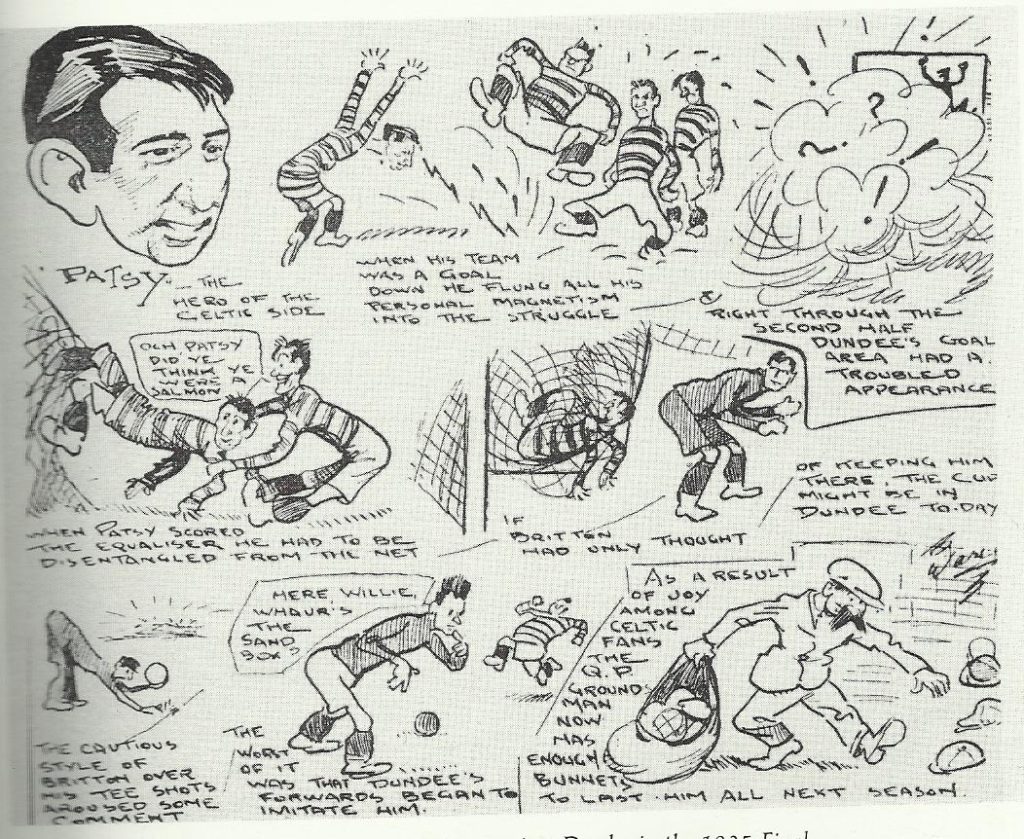 PATSY - THE
HERO OF THE
CELTIC SIDE
WHEN HIS TEAM
WAS A GOAL
DOWN HE FLUNG ALL HIS
PERSONAL MAGNETISM
INTO THE STRUGGLE
&
RIGHT THROUGH THE
SECOND HALF
DUNDEE'S GOAL
AREA HAD A
TROUBLED
APPEARANCE
! ? ? ! !
OCH PATSY
DID YE
THINK YE
WERE A
SALMON
WHEN PATSY SCORED
THE EQUALISER HE HAD TO BE
DISENTANGLED FROM THE NET
IF
BRITTON
HAD ONLY THOUGHT
OF KEEPING HIM
THERE, THE CUP
MIGHT BE IN
DUNDEE TO-DAY
THE CAUTIOUS
STYLE OF
BRITTON OVER
HIS TEE SHOTS
AROUSED SOME
COMMENT
HERE, WILLIE,
WHAUR'S
THE
SAND
BOX?
THE
WORST
OF IT
WAS THAT DUNDEE'S
FORWARDS BEGAN TO
IMITATE HIM.
AS A RESULT
OF JOY
AMONG
CELTIC
FANS
THE
Q.P.
GROUND-
MAN
NOW
HAS
ENOUGH
BUNNETS
TO LAST HIM ALL NEXT SEASON.
in the 1925 Final